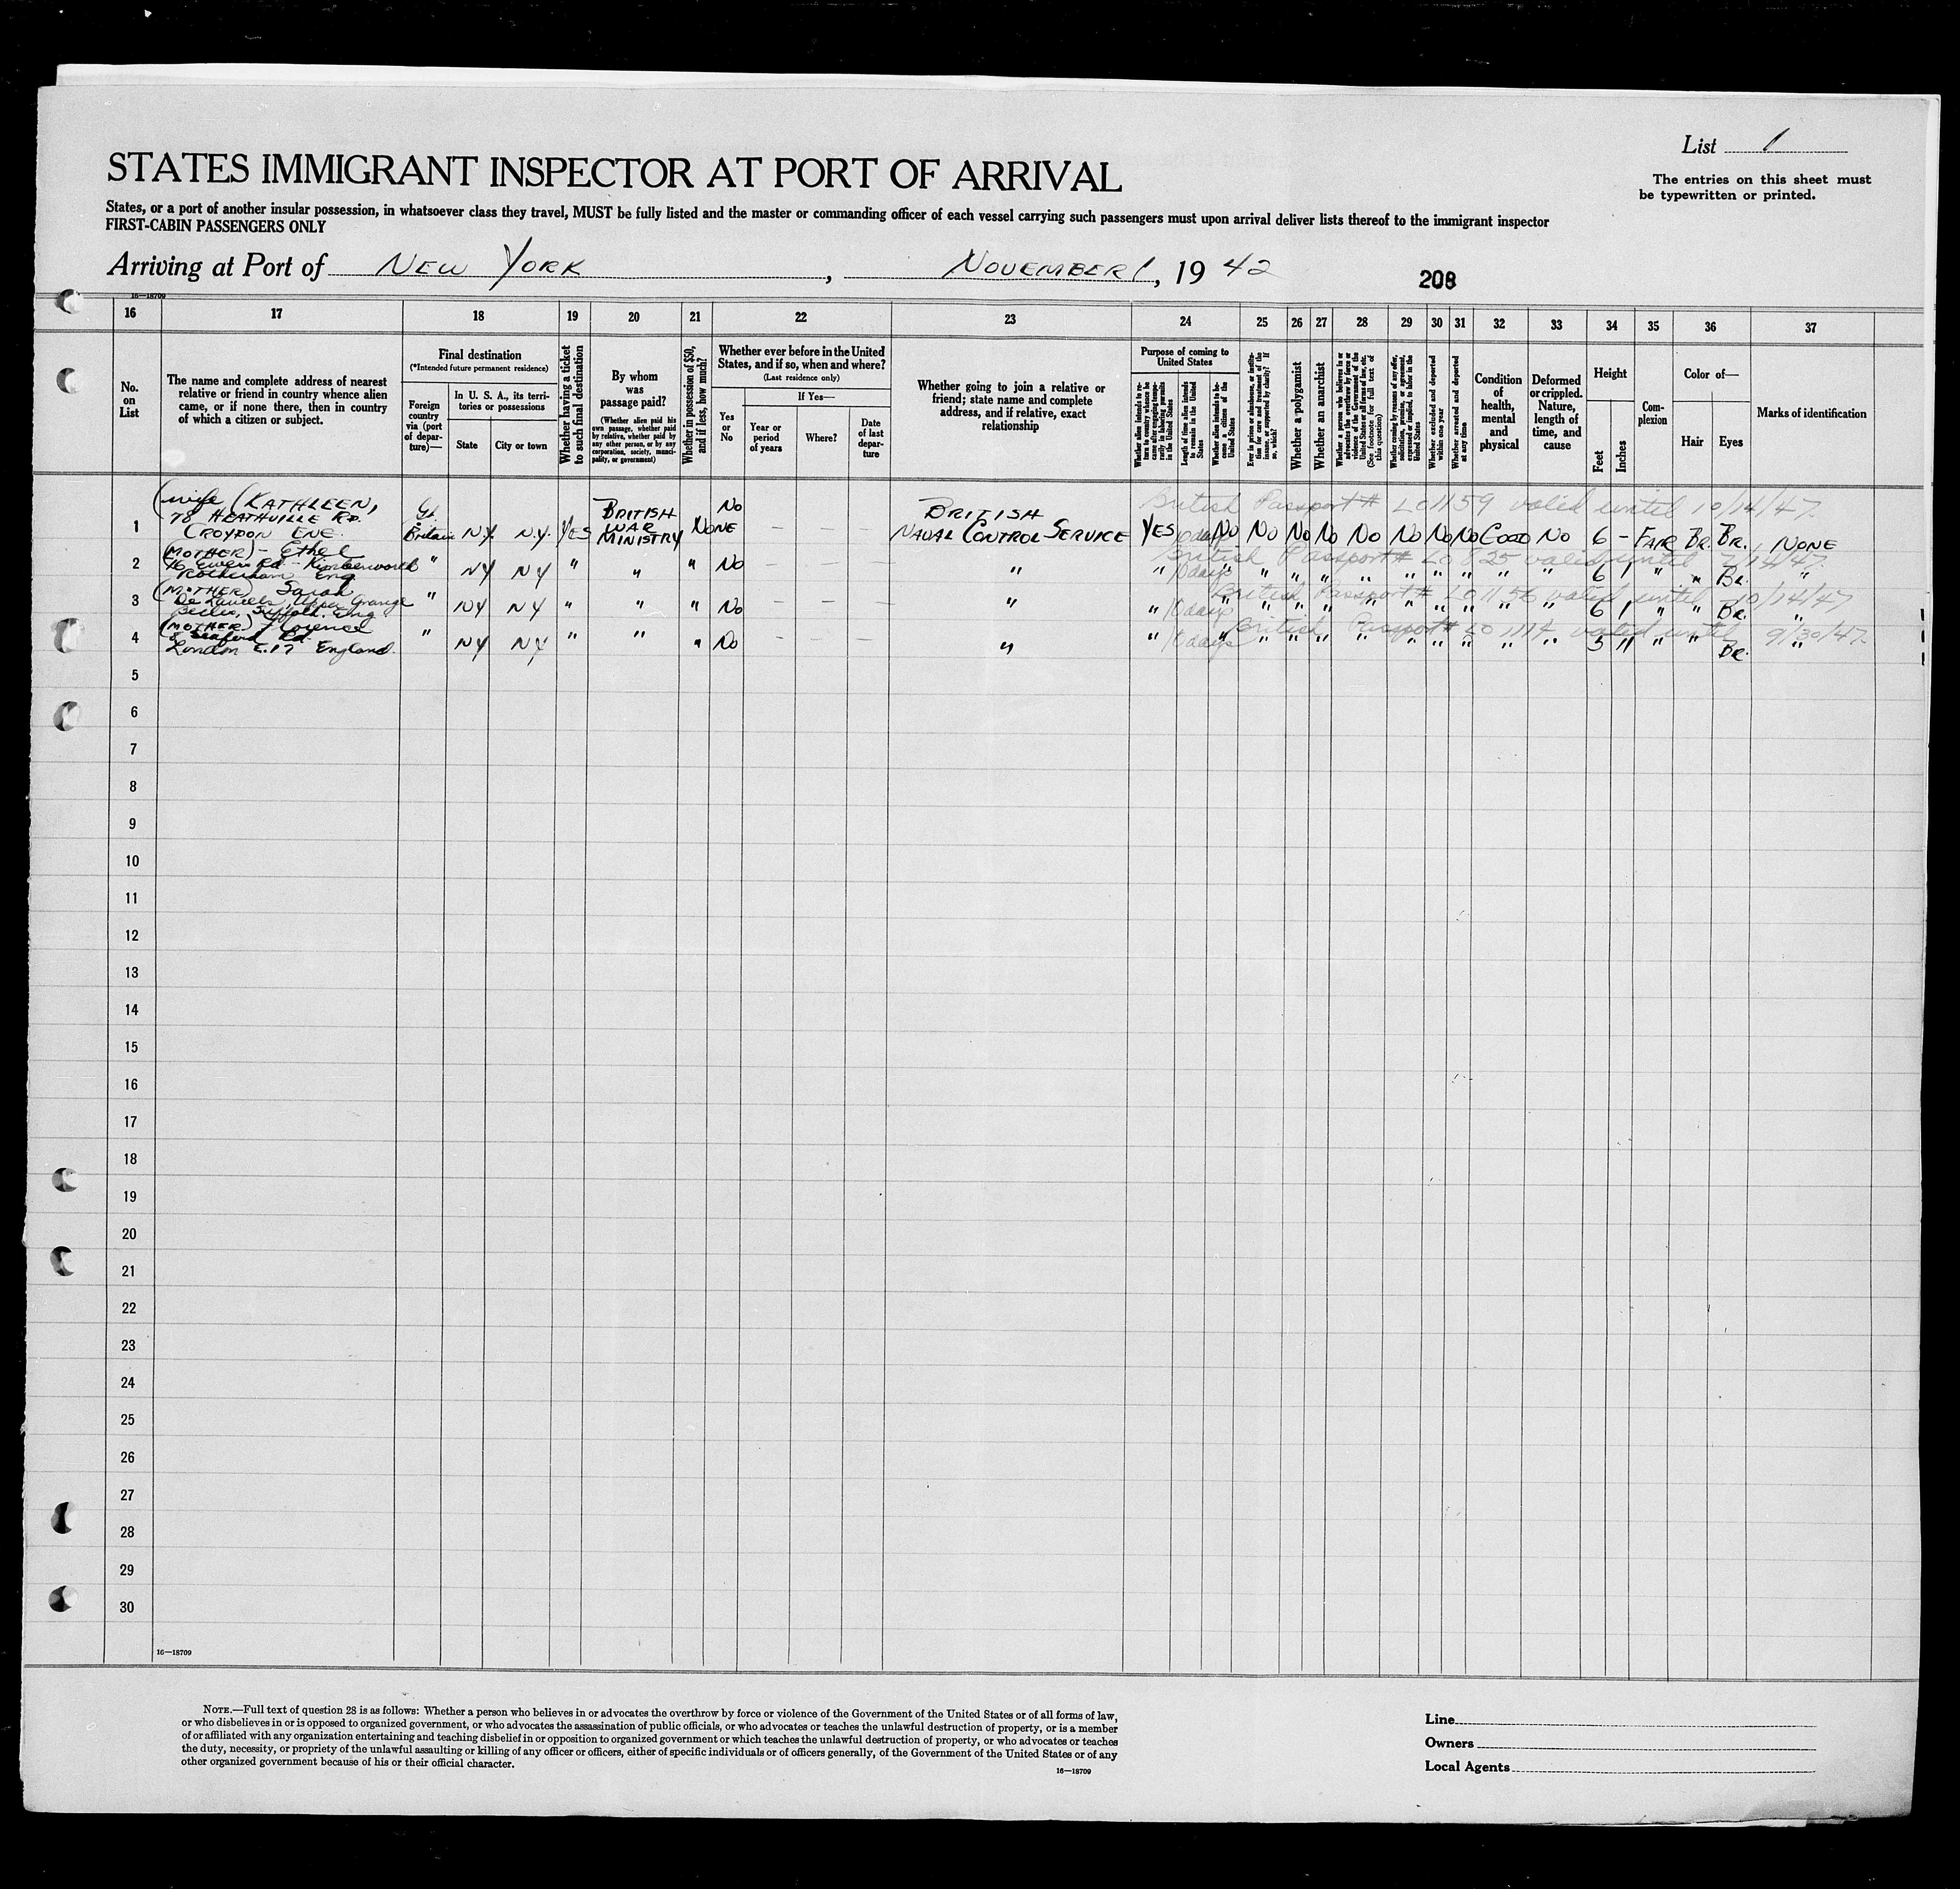 List 1
The entries on this sheet must
be typewritten or printed.
STATES IMMIGRANT INSPECTOR AT PORT OF ARRIVAL
States, or a port of another insular possession, in whatsoever class they travel, MUST be fully listed and the master or commanding officer of each vessel carrying such passengers must upon arrival deliver lists thereof to the immigrant inspector
FIRST-CABIN PASSENGERS ONLY
Arriving at Port of NEW YORK, NOVEMBER 1, 19 42
208
16—18709
16 17 18 19 20 21 22 23 24 25 26 27 28 29 30 31 32 33 34 35 36 37
No.
on
List
The name and complete address of nearest
relative or friend in country whence alien
came, or if none there, then in country
of which a citizen or subject.
Final destination
(*Intended future permanent residence)
Foreign
country
via (port
of depar-
ture)—
In U. S. A., its terri-
tories or possessions
State
City or town
Whether having a ticket
to such final destination
By whom
was
passage paid?
(Whether alien paid his
own passage, whether paid
by relative, whether paid by
any other person, or by any
corporation, society, munici-
pality, or government)
Whether in possession of $50,
and if less, how much?
Whether ever before in the United
States, and if so, when and where?
(Last residence only)
Yes
or
No
If Yes—
Year or
period
of years
Where?
Date
of last
depar-
ture
Whether going to join a relative or
friend; state name and complete
address, and if relative, exact
relationship
Purpose of coming to
United States
Whether alien intends to re-
turn to country whence he
came after engaging tempo-
rarily in laboring pursuits
in the United States
Length of time alien intends
to remain in the United
States
Whether alien intends to be-
come a citizen of the
United States
Ever in prison or almshouse, or institu-
tion for care and treatment of the
insane, or supported by charity? If
so, which?
Whether a polygamist
Whether an anarchist
Whether a person who believes in or
advocates the overthrow by force or
violence of the Government of the
United States or all forms of law, etc.
(See footnote for full text of
this question)
Whether coming by reason of any offer,
solicitation, promise, or agreement,
expressed or implied, to labor in the
United States
Whether excluded and deported
within one year
Whether arrested and deported
at any time
Condition
of
health,
mental
and
physical
Deformed
or crippled.
Nature,
length of
time, and
cause
Height
Feet
Inches
Com-
plexion
Color of—
Hair
Eyes
Marks of identification
British Passport # L01159 valid until 10/14/47
1 (wife) (KATHLEEN, 78 HEATHVILLE RD. CROYDON ENG. Gt Britain N.Y. N.Y. YES BRITISH WAR MINISTRY NONE No — — — BRITISH NAVAL CONTROL SERVICE YES 10 days No No No No No No No No GOOD No 6 - FAIR BR. BR. NONE
British Passport # L0825 valid until
2 (MOTHER) - Ethel Rd - Kimberworth Rotherham Eng " NY NY " " " No — — — " " 10 days " " " " " " " " " " 6 1 " " Br. "
British Passport # L01156 valid until 10/14/47
3 (MOTHER) Sarah Grange Suffolk Eng " NY NY " " " No — — — " " 10 days " " " " " " " " " " 6 1 " " Br. "
British Passport # L01114 valid until 9/30/47
4 (MOTHER) Florence 8 Seaford Rd. London E.17 England. " NY NY " " " No — — — " " 10 days " " " " " " " " " " 5 11 " " Br. "
5
6
7
8
9
10
11
12
13
14
15
16
17
18
19
20
21
22
23
24
25
26
27
28
29
30
16—18709
NOTE.—Full text of question 28 is as follows: Whether a person who believes in or advocates the overthrow by force or violence of the Government of the United States or of all forms of law,
or who disbelieves in or is opposed to organized government, or who advocates the assassination of public officials, or who advocates or teaches the unlawful destruction of property, or is a member
of or affiliated with any organization entertaining and teaching disbelief in or opposition to organized government or which teaches the unlawful destruction of property, or who advocates or teaches
the duty, necessity, or propriety of the unlawful assaulting or killing of any officer or officers, either of specific individuals or of officers generally, of the Government of the United States or of any
other organized government because of his or their official character.
16—18709
Line
Owners
Local Agents